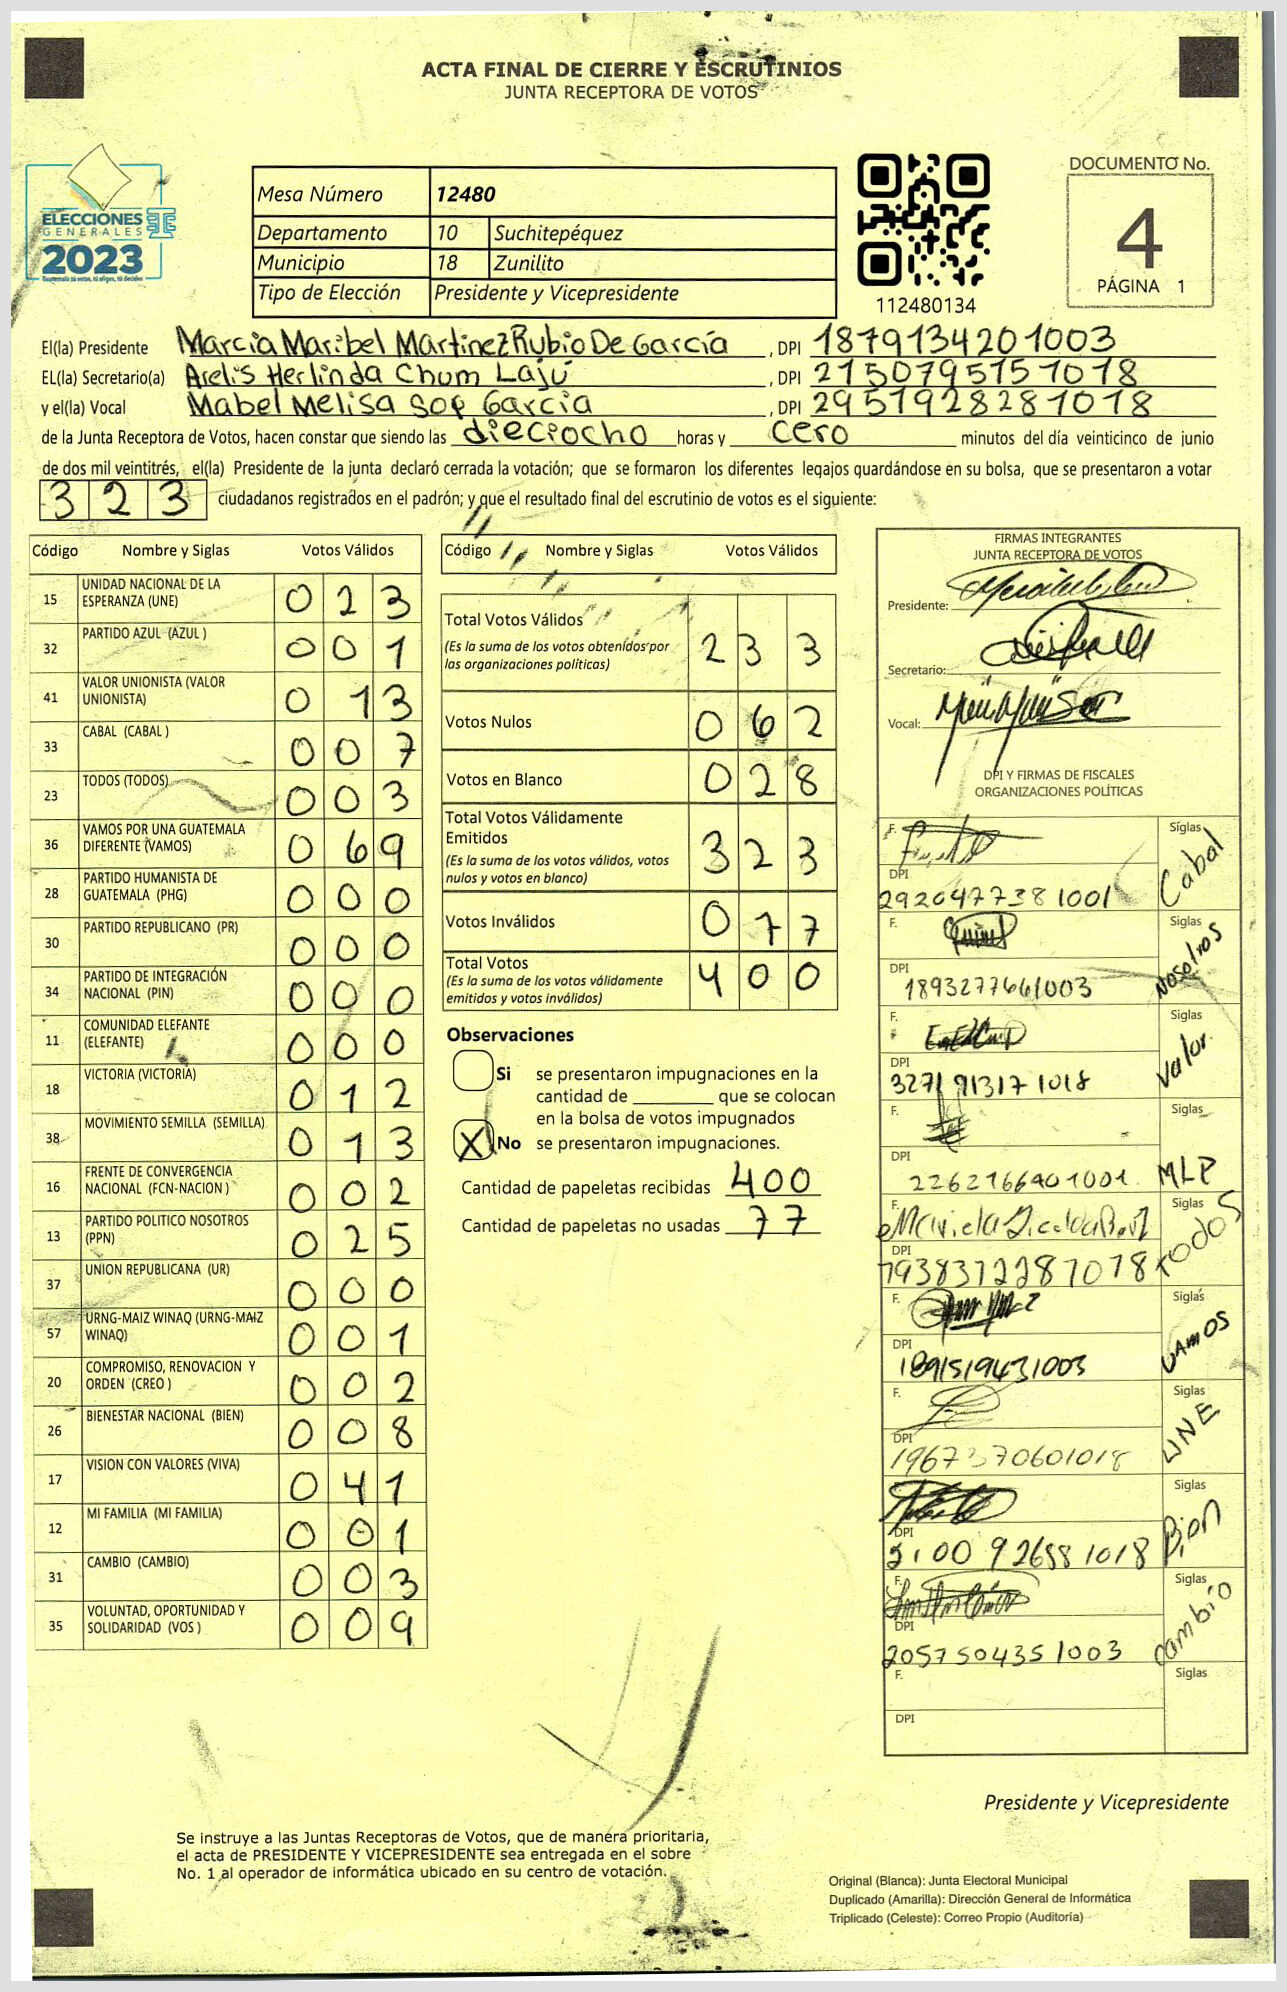 ACTA FINAL DE CIERRE Y ESCRUTINIOS
JUNTA RECEPTORA DE VOTOS
ELECCIONES
GENERALES
2023
Mesa Número 12480
Departamento 10 Suchitepéquez
Municipio 18 Zunilito
Tipo de Elección Presidente y Vicepresidente
112480134
DOCUMENTO No.
4
PÁGINA 1
El(la) Presidente Marcia Maribel Martinez Rubio De García , DPI 1879134201003
EL(la) Secretario(a) Arelis Herlinda Chum Lajú , DPI 2150795151018
y el(la) Vocal Mabel Melisa Sop García , DPI 2951928281018
de la Junta Receptora de Votos, hacen constar que siendo las dieciocho horas y cero minutos del día veinticinco de junio
de dos mil veintitrés, el(la) Presidente de la junta declaró cerrada la votación; que se formaron los diferentes legajos guardándose en su bolsa, que se presentaron a votar
323 ciudadanos registrados en el padrón; y que el resultado final del escrutinio de votos es el siguiente:
Código Nombre y Siglas Votos Válidos
15 UNIDAD NACIONAL DE LA ESPERANZA (UNE) 023
32 PARTIDO AZUL (AZUL ) 001
41 VALOR UNIONISTA (VALOR UNIONISTA) 013
33 CABAL (CABAL ) 007
23 TODOS (TODOS) 003
36 VAMOS POR UNA GUATEMALA DIFERENTE (VAMOS) 069
28 PARTIDO HUMANISTA DE GUATEMALA (PHG) 000
30 PARTIDO REPUBLICANO (PR) 000
34 PARTIDO DE INTEGRACIÓN NACIONAL (PIN) 000
11 COMUNIDAD ELEFANTE (ELEFANTE) 000
18 VICTORIA (VICTORIA) 012
38 MOVIMIENTO SEMILLA (SEMILLA) 013
16 FRENTE DE CONVERGENCIA NACIONAL (FCN-NACION ) 002
13 PARTIDO POLITICO NOSOTROS (PPN) 025
37 UNION REPUBLICANA (UR) 000
57 URNG-MAIZ WINAQ (URNG-MAIZ WINAQ) 001
20 COMPROMISO, RENOVACION Y ORDEN (CREO ) 002
26 BIENESTAR NACIONAL (BIEN) 008
17 VISION CON VALORES (VIVA) 041
12 MI FAMILIA (MI FAMILIA) 001
31 CAMBIO (CAMBIO) 003
35 VOLUNTAD, OPORTUNIDAD Y SOLIDARIDAD (VOS ) 009
Código Nombre y Siglas Votos Válidos
Total Votos Válidos 233
(Es la suma de los votos obtenidos por las organizaciones políticas)
Votos Nulos 062
Votos en Blanco 028
Total Votos Válidamente Emitidos 323
(Es la suma de los votos válidos, votos nulos y votos en blanco)
Votos Inválidos 077
Total Votos 400
(Es la suma de los votos válidamente emitidos y votos inválidos)
Observaciones
Si se presentaron impugnaciones en la
cantidad de ________ que se colocan
en la bolsa de votos impugnados
X No se presentaron impugnaciones.
Cantidad de papeletas recibidas 400
Cantidad de papeletas no usadas 77
FIRMAS INTEGRANTES
JUNTA RECEPTORA DE VOTOS
Presidente:
Secretario:
Vocal:
DPI Y FIRMAS DE FISCALES
ORGANIZACIONES POLÍTICAS
F. Siglas Cabal
DPI 2920477381001
F. Siglas Nosotros
DPI 1893277661003
F. Siglas Valor
DPI 3271913171018
F. Siglas MLP
DPI 2262166901001
F. Siglas TODOS
DPI 1938312281018
F. Siglas VAMOS
DPI 1891519431003
F. Siglas UNE
DPI 1967370601018
Siglas Bien
DPI 3100926581018
F. Siglas Cambio
DPI 2057504351003
F. Siglas
DPI
Presidente y Vicepresidente
Se instruye a las Juntas Receptoras de Votos, que de manera prioritaria,
el acta de PRESIDENTE Y VICEPRESIDENTE sea entregada en el sobre
No. 1 al operador de informática ubicado en su centro de votación.
Original (Blanca): Junta Electoral Municipal
Duplicado (Amarilla): Dirección General de Informática
Triplicado (Celeste): Correo Propio (Auditoría)